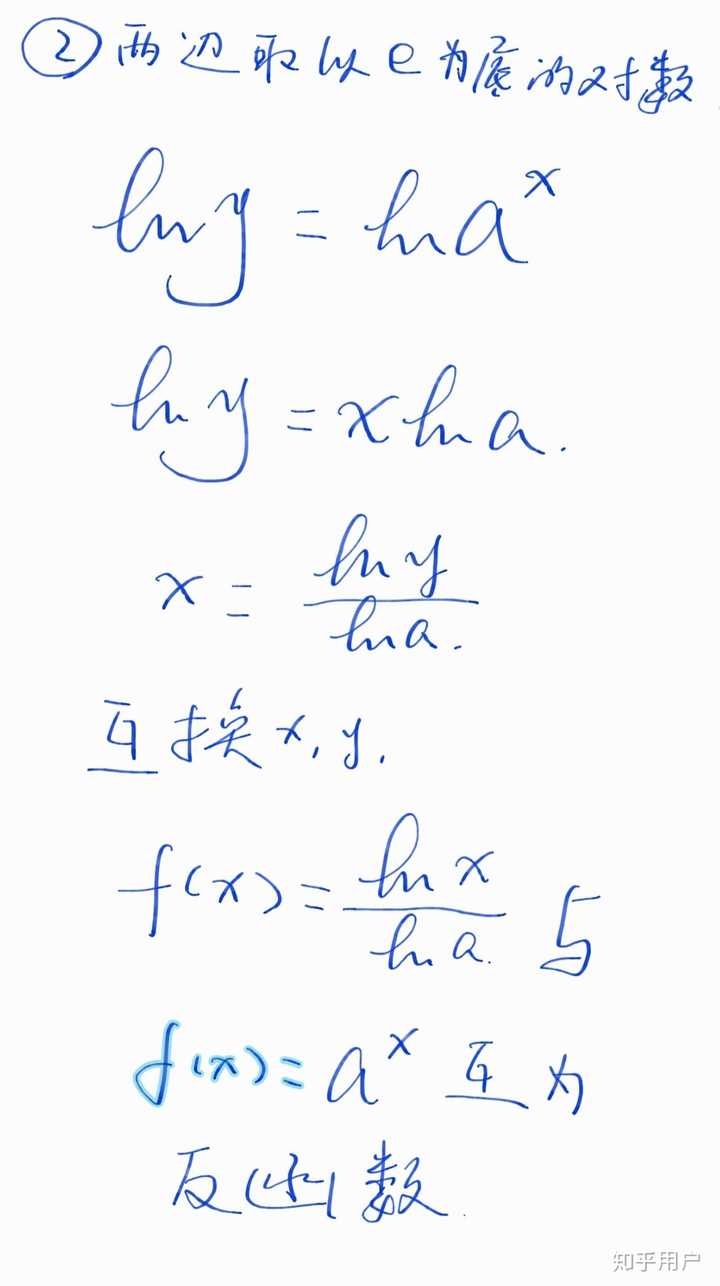 ②两边取以e为底的对数
ln y = ln aˣ
ln y = x ln a.
x = ln y / ln a.
互换x,y.
f(x) = ln x / ln a. 与
f(x) = aˣ 互为
反函数
知乎用户